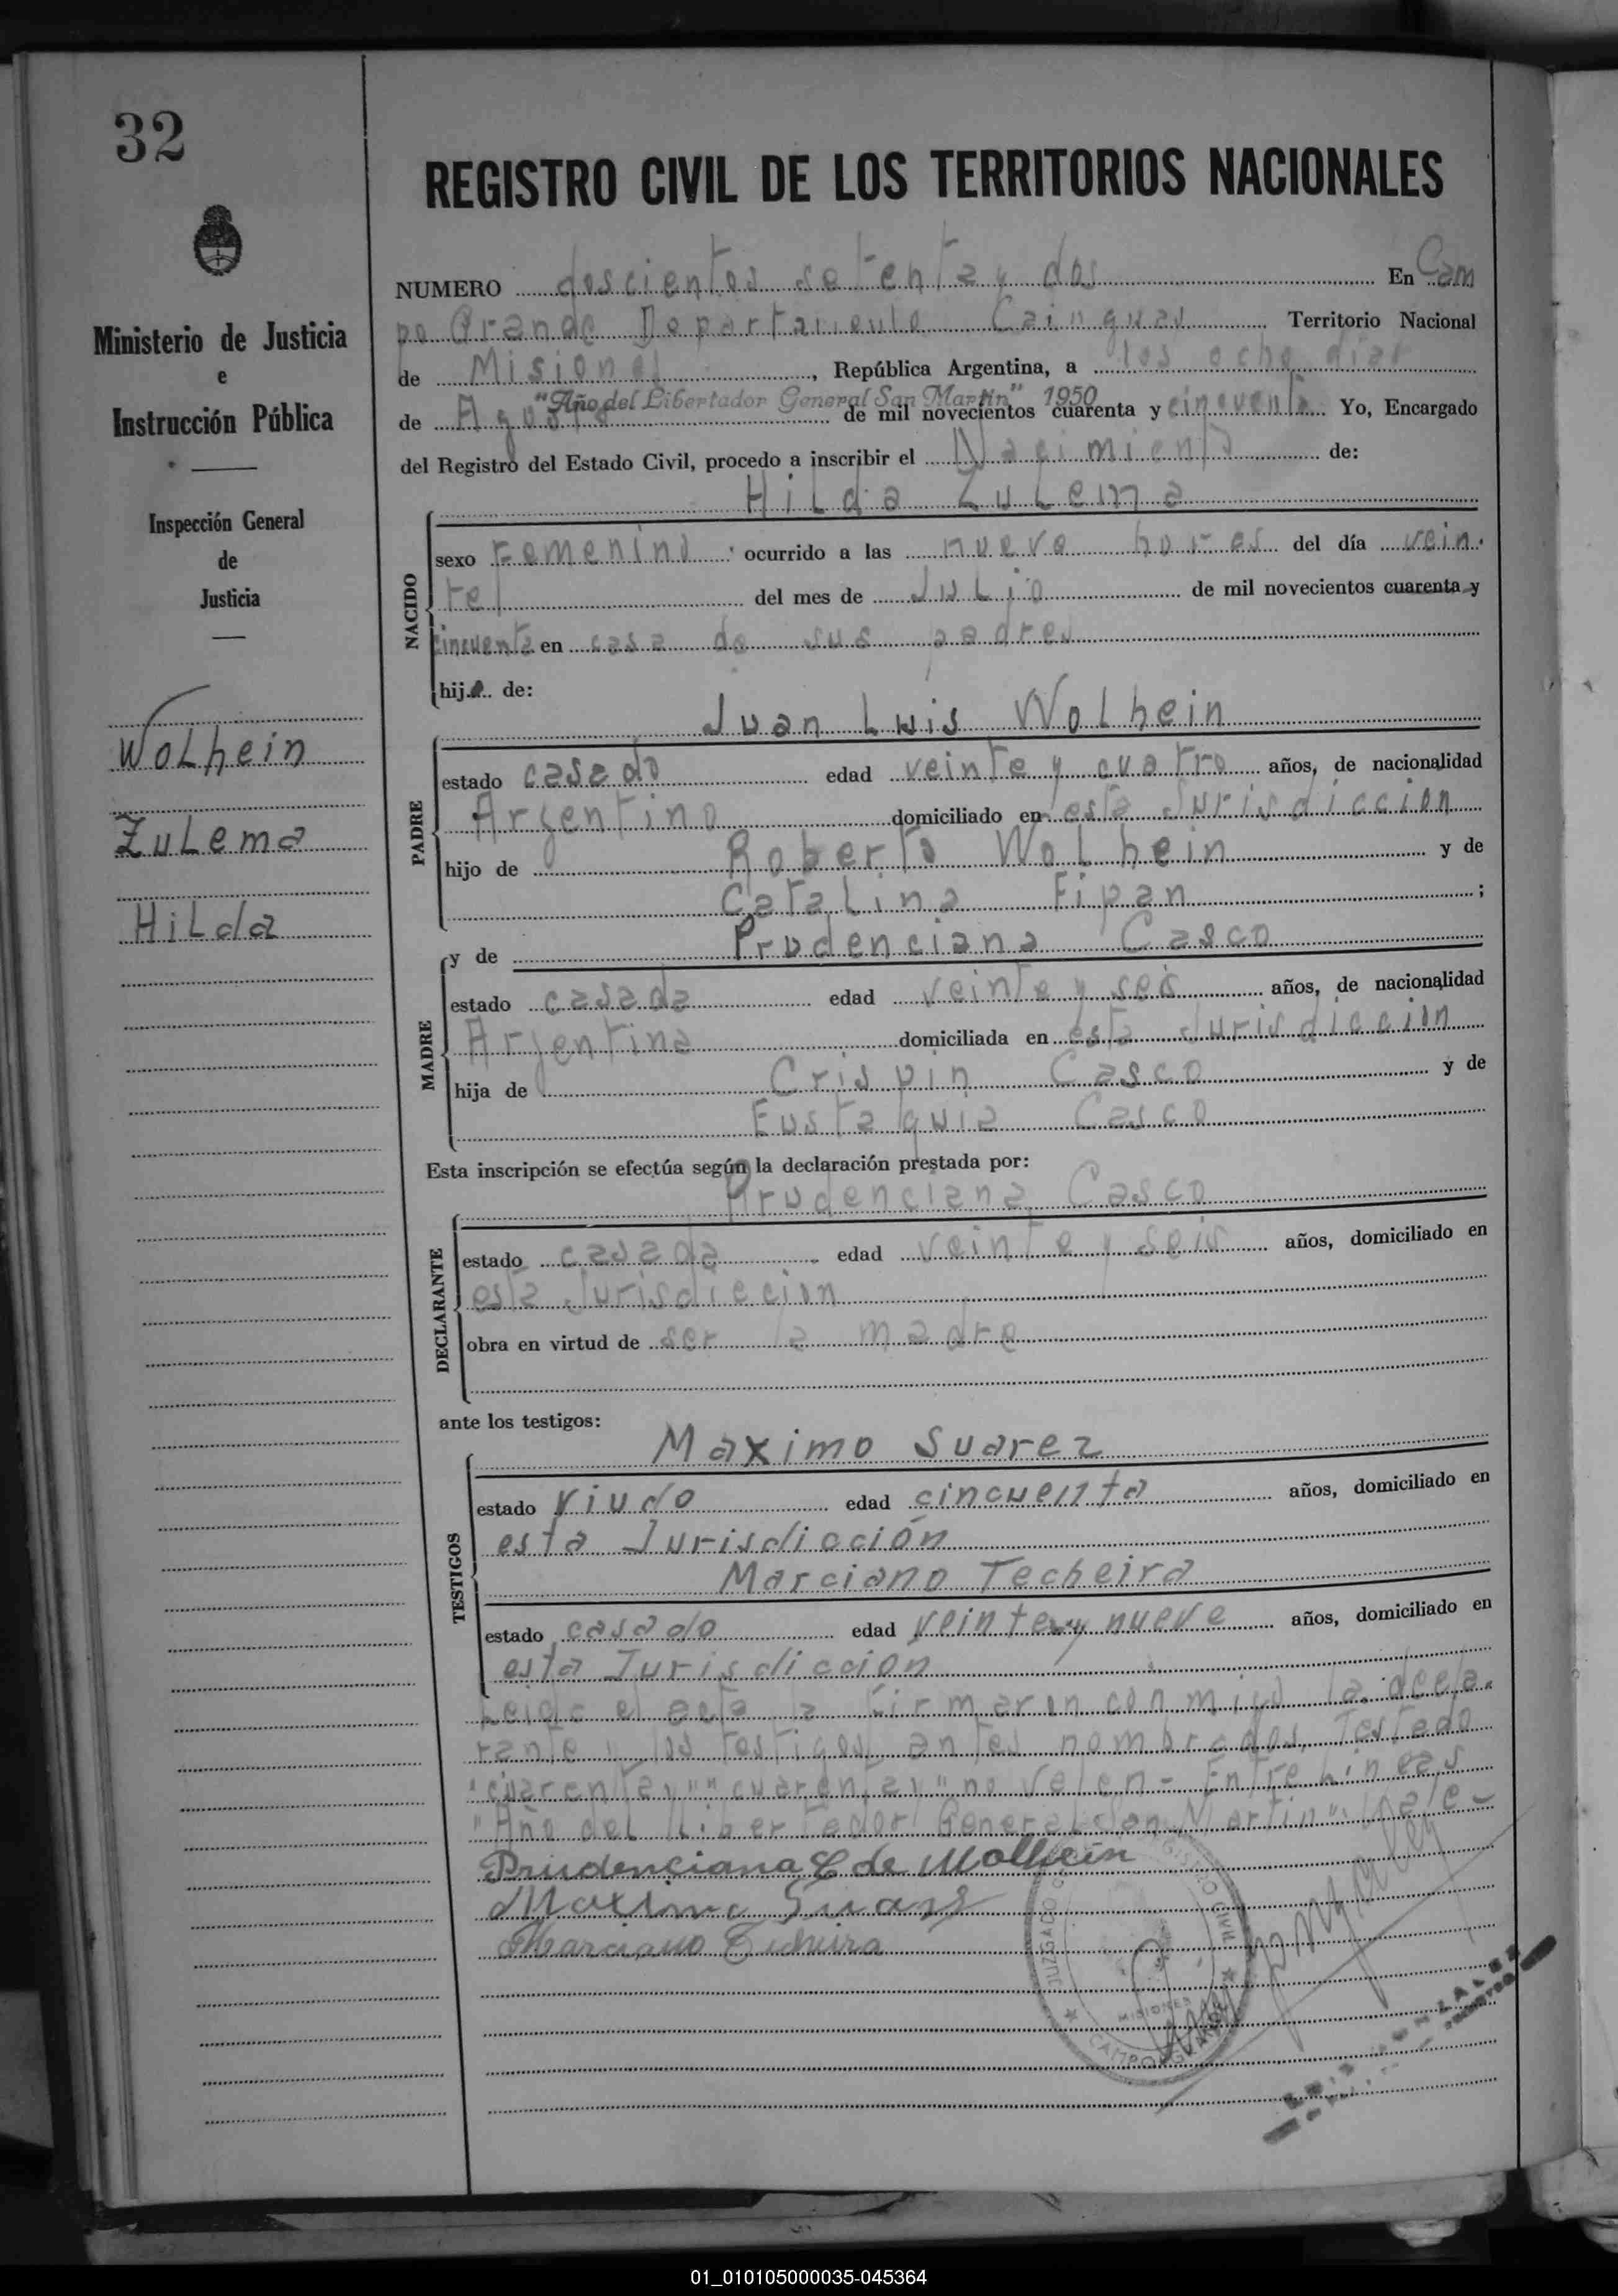 32
REGISTRO CIVIL DE LOS TERRITORIOS NACIONALES
Ministerio de Justicia
e
Instrucción Pública
Inspección General
de
Justicia
Wolhein
Zulema
Hilda
NUMERO doscientos setenta y dos En Cam
po Grande Departamento Cainguas Territorio Nacional
de Misiones, República Argentina, a los ocho dias
"Año del Libertador General San Martín" 1950
de Agosto de mil novecientos cuarenta y cincuenta Yo, Encargado
del Registro del Estado Civil, procedo a inscribir el Nacimiento de:
Hilda Zulema
NACIDO
sexo Femenino ocurrido a las nueve horas del día vein
te del mes de Julio de mil novecientos cuarenta y
cincuenta en casa de sus padres
hija de:
Juan Luis Wolhein
PADRE
estado casado edad veinte y cuatro años, de nacionalidad
Argentino domiciliado en esta Jurisdiccion
hijo de Roberto Wolhein y de
Catalina Fipan ;
y de Prudenciana Casco
MADRE
estado casada edad veinte y seis años, de nacionalidad
Argentina domiciliada en esta Jurisdiccion
hija de Crispin Casco y de
Eustaquia Casco
Esta inscripción se efectúa según la declaración prestada por:
Prudenciana Casco
DECLARANTE
estado casada edad veinte y seis años, domiciliado en
esta Jurisdiccion
obra en virtud de ser la madre
ante los testigos:
Maximo Suarez
TESTIGOS
estado Viudo edad cincuenta años, domiciliado en
esta Jurisdicción
Marciano Techeira
estado casado edad veinte y nueve años, domiciliado en
esta Jurisdiccion
Leida el acta la firmaron conmigo la decla-
rante y los testigos antes nombrados. Testado
"cuarenta y" "cuarenta y" no valen - Entre lineas
"Año del Libertador General San Martin": Vale -
Prudenciana C de Wolhein
Maximo Suarez
Marciano Ticheira
JUZGADO REGISTRO CIVIL
MISIONES
CAMPO GRANDE
01_010105000035-045364